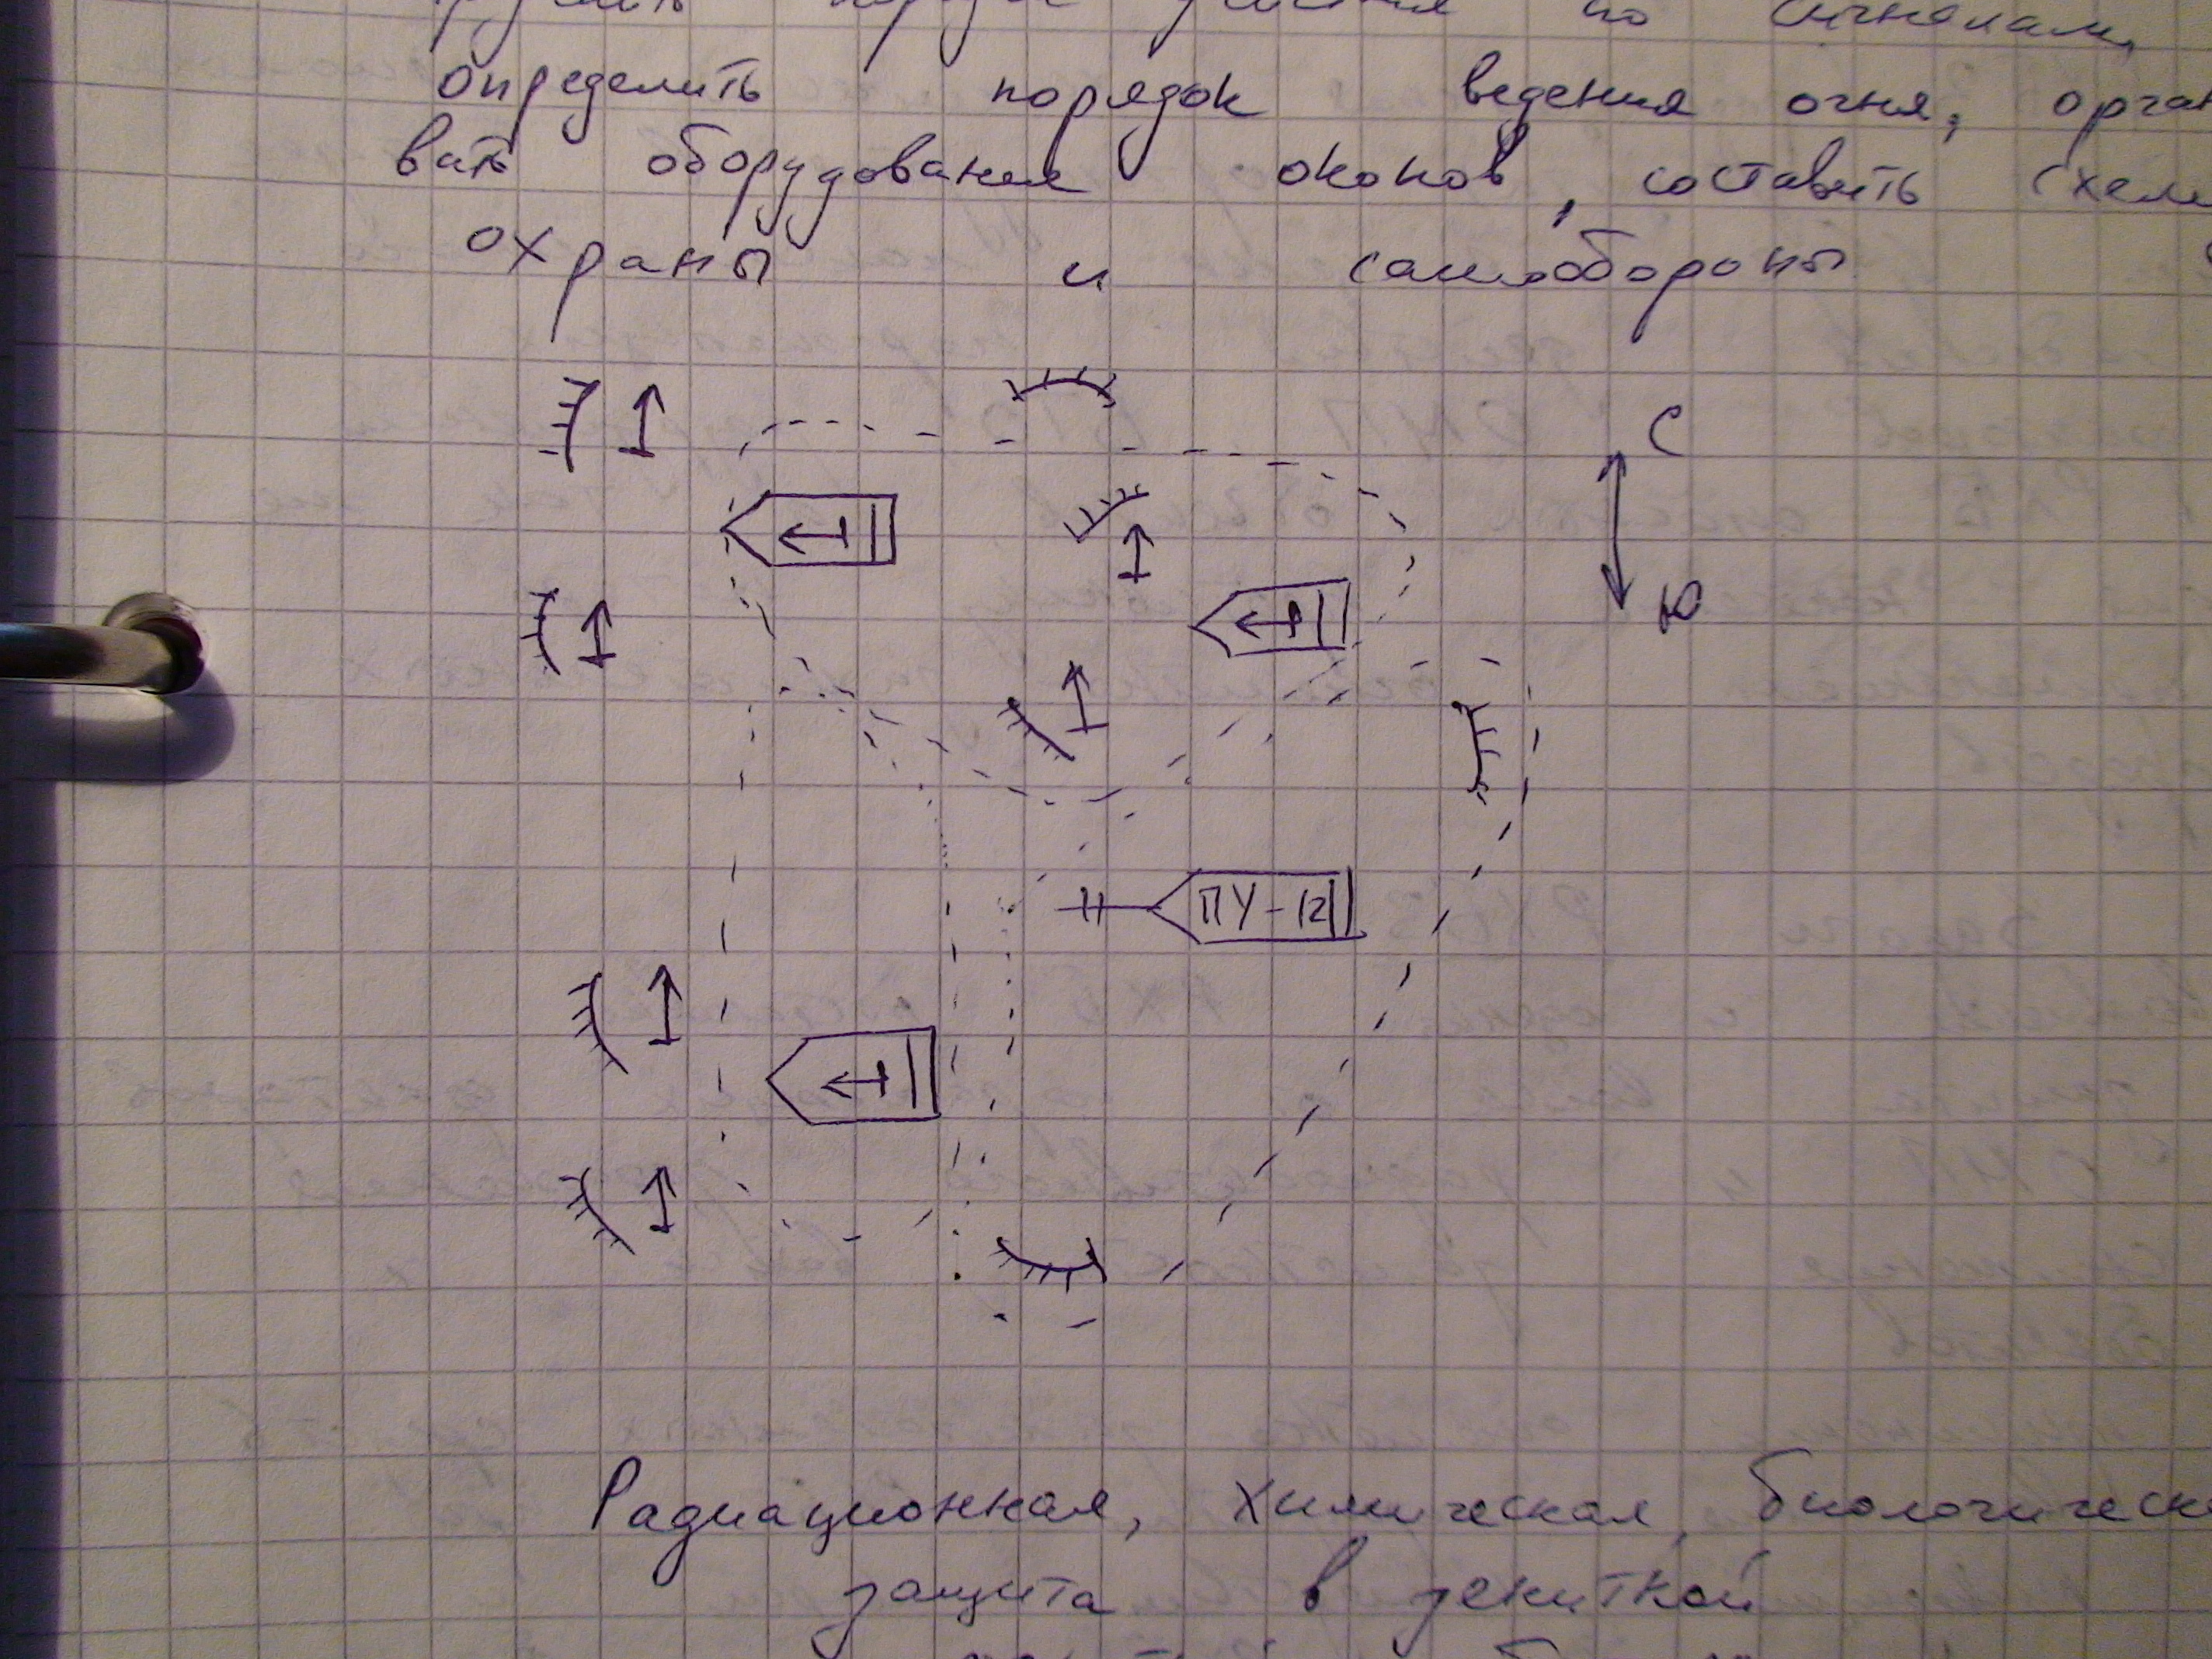 по сигналам,
определить порядок ведения огня, орган
вать оборудование окопов, составить схем
охраны и самообороны
С
Ю
ПУ-12
Радиационная, химическая, биологическ
защита в зенитной